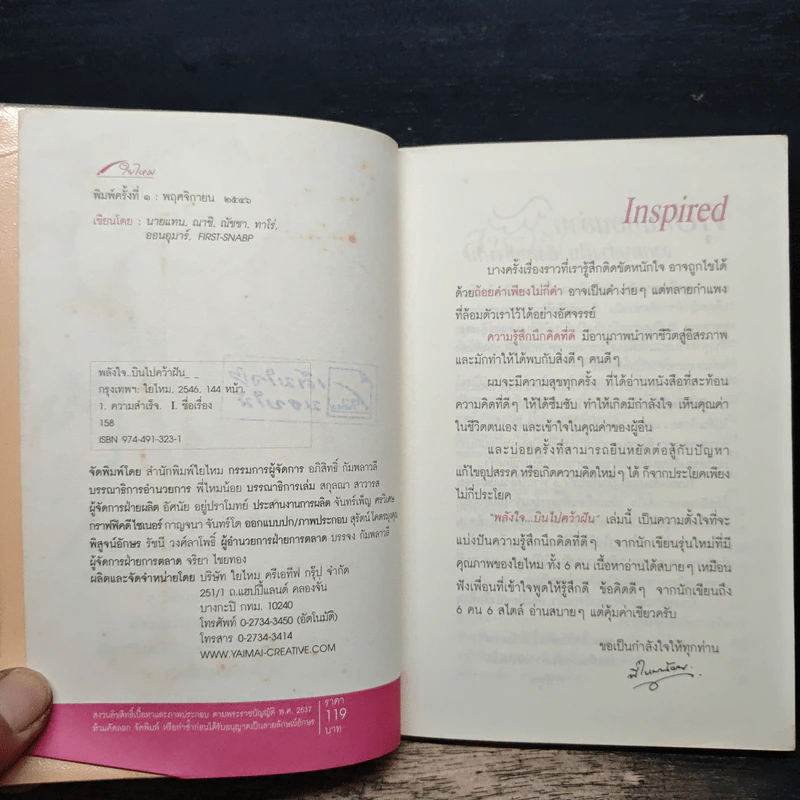 ใยไหม
พิมพ์ครั้งที่ ๑ : พฤศจิกายน ๒๕๔๖
เขียนโดย : นายแทน, ณาชิ, ณัชชา, ทาโร่,
ออนอุมาร์, FIRST-SNABP
พลังใจ..บินไปคว้าฝัน_ _
กรุงเทพฯ: ใยไหม, 2546, 144 หน้า.
1. ความสำเร็จ. I. ชื่อเรื่อง
158
ISBN 974-491-323-1
จัดพิมพ์โดย สำนักพิมพ์ใยไหม กรรมการผู้จัดการ อภิสิทธิ์ กัมพลาวลี
บรรณาธิการอำนวยการ พี่ไหมน้อย บรรณาธิการเล่ม สกุลณา สาวารส
ผู้จัดการฝ่ายผลิต อัศนัย อยู่ปราโมทย์ ประสานงานการผลิต จันทร์เพ็ญ ศรวิเศษ
กราฟฟิคดีไซเนอร์ กาญจนา จันทร์โต ออกแบบปก/ภาพประกอบ สุรัตน์
พิสูจน์อักษร รัชนี วงศ์ลาโพธิ์ ผู้อำนวยการฝ่ายการตลาด บรรจง กัมพลาวลี
ผู้จัดการฝ่ายการตลาด จริยา ไชยทอง
ผลิตและจัดจำหน่ายโดย บริษัท ใยไหม ครีเอทีฟ กรุ๊ป จำกัด
251/1 ถ.แฮปปี้แลนด์ คลองจั่น
บางกะปิ กทม. 10240
โทรศัพท์ 0-2734-3450 (อัตโนมัติ)
โทรสาร 0-2734-3414
WWW.YAIMAI-CREATIVE.COM
สงวนลิขสิทธิ์เนื้อหาและภาพประกอบ ตามพระราชบัญญัติ พ.ศ. 2537
ห้ามคัดลอก จัดพิมพ์ หรือทำซ้ำก่อนได้รับอนุญาตเป็นลายลักษณ์อักษร
ราคา
119
บาท
Inspired
บางครั้งเรื่องราวที่เรารู้สึกติดขัดหนักใจ อาจถูกไขได้
ด้วยถ้อยคำเพียงไม่กี่คำ อาจเป็นคำง่ายๆ แต่ทลายกำแพง
ที่ล้อมตัวเราไว้ได้อย่างอัศจรรย์
ความรู้สึกนึกคิดที่ดี มีอานุภาพนำพาชีวิตสู่อิสรภาพ
และมักทำให้ได้พบกับสิ่งดีๆ คนดีๆ
ผมจะมีความสุขทุกครั้ง ที่ได้อ่านหนังสือที่สะท้อน
ความคิดที่ดีๆ ให้ได้ซึมซับ ทำให้เกิดมีกำลังใจ เห็นคุณค่า
ในชีวิตตนเอง และเข้าใจในคุณค่าของผู้อื่น
และบ่อยครั้งที่สามารถยืนหยัดต่อสู้กับปัญหา
แก้ไขอุปสรรค หรือเกิดความคิดใหม่ๆ ได้ ก็จากประโยคเพียง
ไม่กี่ประโยค
"พลังใจ...บินไปคว้าฝัน" เล่มนี้ เป็นความตั้งใจที่จะ
แบ่งปันความรู้สึกนึกคิดที่ดีๆ จากนักเขียนรุ่นใหม่ที่มี
คุณภาพของใยไหม ทั้ง 6 คน เนื้อหาอ่านได้สบายๆ เหมือน
ฟังเพื่อนที่เข้าใจพูดให้รู้สึกดี ข้อคิดดีๆ จากนักเขียนถึง
6 คน 6 สไตล์ อ่านสบายๆ แต่คุ้มค่าเชียวครับ
ขอเป็นกำลังใจให้ทุกท่าน
พี่ไหมน้อย.